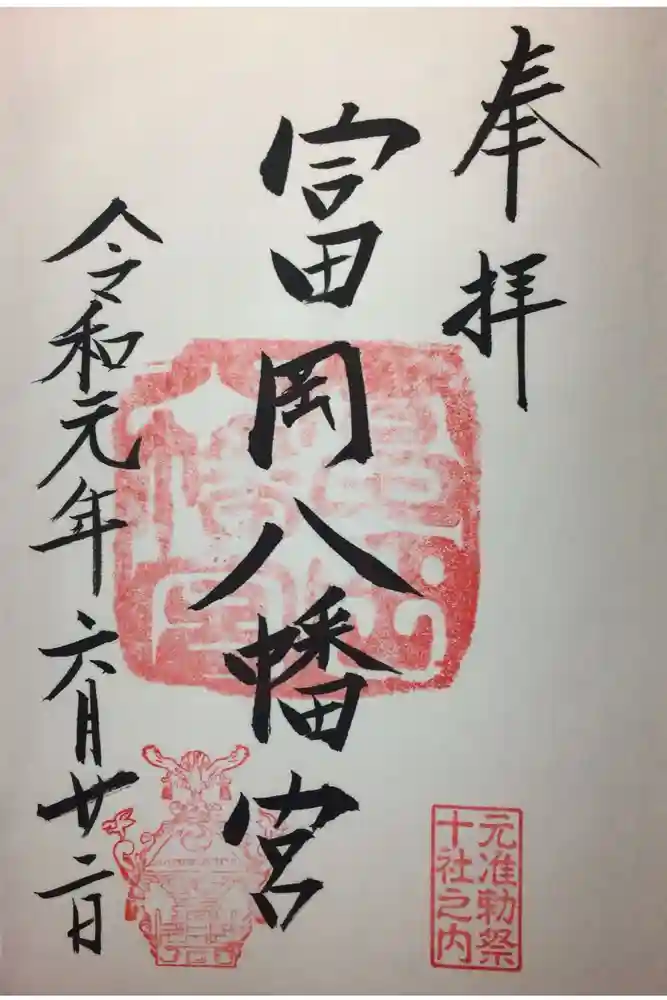 奉拝
富岡八幡宮
令和元年六月廿二日
元准勅祭
十社之内